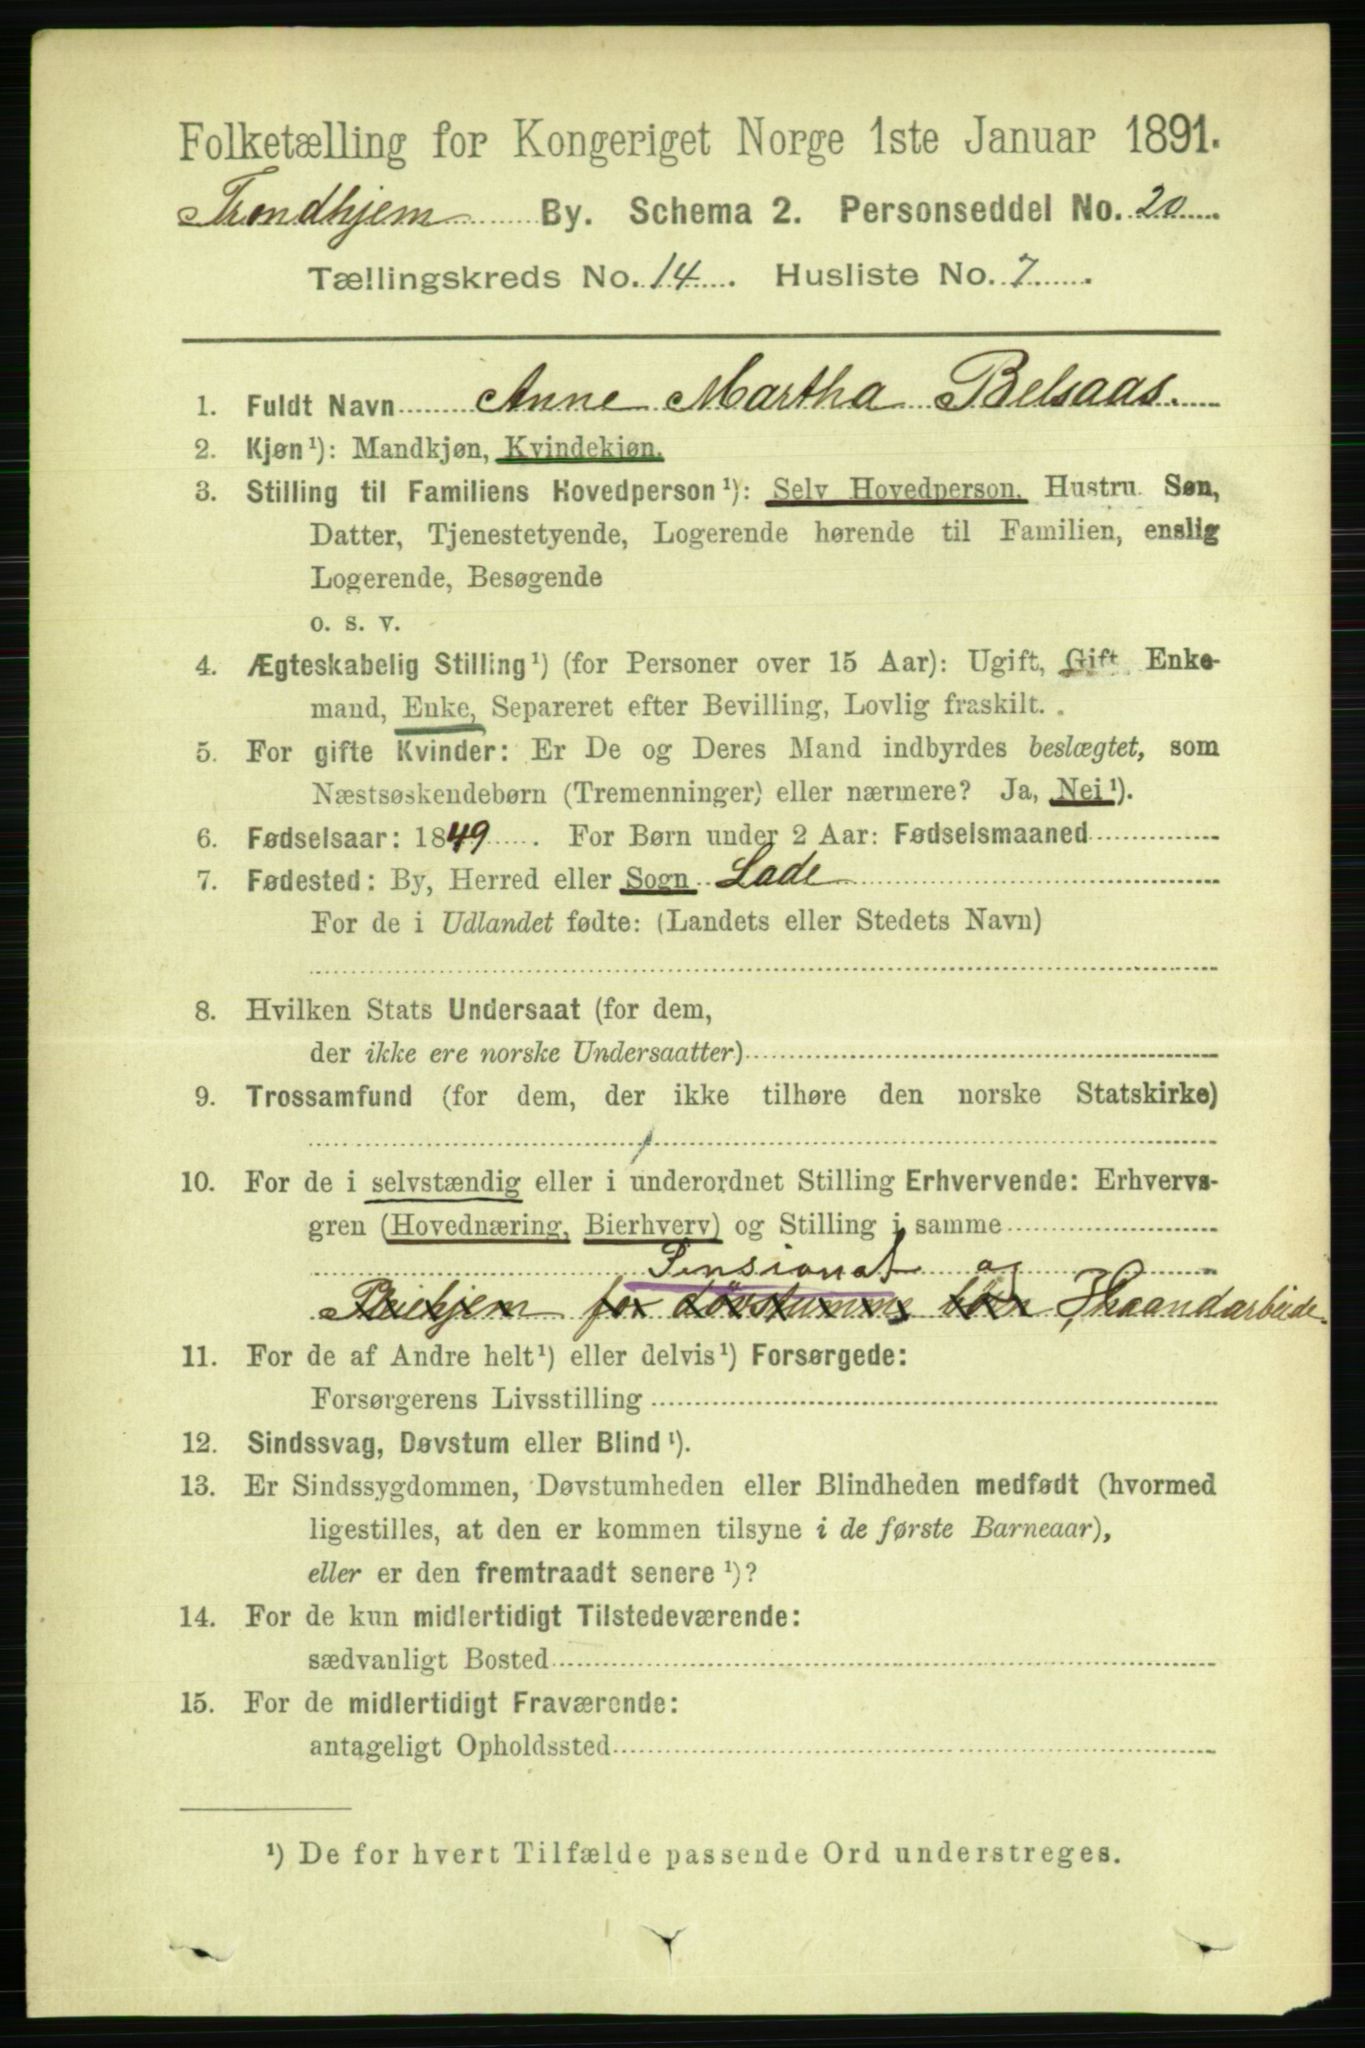 Folketælling for Kongeriget Norge 1ste Januar 1891.
Trondhjem By. Schema 2. Personseddel No. 20
Tællingskreds No. 14. Husliste No. 7.
1. Fuldt Navn Anne Martha Belsaas.
2. Kjøn¹): Mandkjøn, Kvindekjøn.
3. Stilling til Familiens Hovedperson¹): Selv Hovedperson, Hustru. Søn,
Datter, Tjenestetyende, Logerende hørende til Familien, enslig
Logerende, Besøgende
o. s. v.
4. Ægteskabelig Stilling¹) (for Personer over 15 Aar): Ugift, Gift, Enke-
mand, Enke, Separeret efter Bevilling, Lovlig fraskilt.
5. For gifte Kvinder: Er De og Deres Mand indbyrdes beslægtet, som
Næstsøskendebørn (Tremenninger) eller nærmere? Ja, Nei¹).
6. Fødselsaar: 1849. For Børn under 2 Aar: Fødselsmaaned
7. Fødested: By, Herred eller Sogn Lade
For de i Udlandet fødte: (Landets eller Stedets Navn)
8. Hvilken Stats Undersaat (for dem,
der ikke ere norske Undersaatter)
9. Trossamfund (for dem, der ikke tilhøre den norske Statskirke)
10. For de i selvstændig eller i underordnet Stilling Erhvervende: Erhvervs-
gren (Hovednæring, Bierhverv) og Stilling i samme
Pensionat og
for døvstumme børn Haandarbeide.
11. For de af Andre helt¹) eller delvis¹) Forsørgede:
Forsørgerens Livsstilling
12. Sindssvag, Døvstum eller Blind¹).
13. Er Sindssygdommen, Døvstumheden eller Blindheden medfødt (hvormed
ligestilles, at den er kommen tilsyne i de første Barneaar),
eller er den fremtraadt senere¹)?
14. For de kun midlertidigt Tilstedeværende:
sædvanligt Bosted
15. For de midlertidigt Fraværende:
antageligt Opholdssted
¹) De for hvert Tilfælde passende Ord understreges.